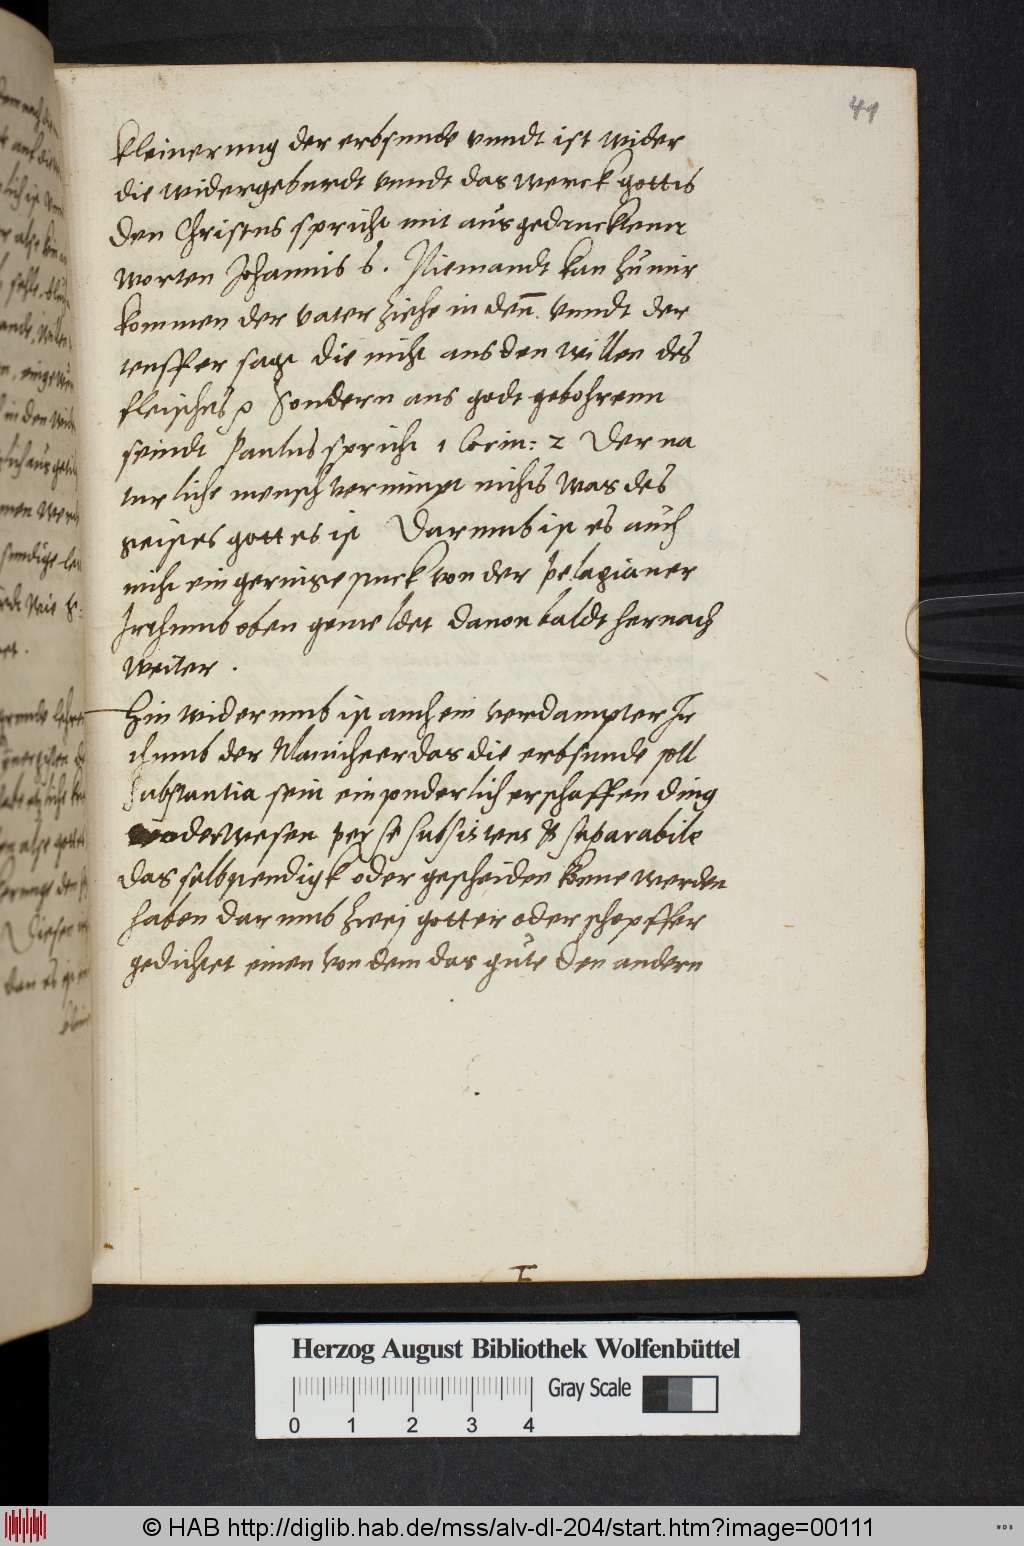 41
kleinerung der erbsunde vnndt ist wider
die widergeburdt vnndt das werck gottes
den Christus spricht mit ausgedrucktenn
worten Johannis 6. Niemandt kan zu mir
kommen der vater ziehe in denn vnndt der
teuffer sagt die nicht aus den willen des
fleisches sondern aus godt gebohrenn
seindt Paulus spricht 1 Corin: 2 Der na
turliche mensch vernimpt nichts was des
geistes gottes ist Darumb ist es auch
nicht ein geringe stuck von der pelagianer
Irthumb oben gemeldet dauon baldt hernach
weiter.
Hin widerumb ist auch ein verdampter Ir
thumb der Manicheer das die erbsunde soll
substantia sein ein sonderlich erschaffen ding
oder wesen per se subsistens & separabile
das selbstendigk oder gescheiden könne werden
haben darumb zwej gotter oder schopffer
gedichtet einen von dem das gute den andern
Herzog August Bibliothek Wolfenbüttel
Gray Scale
0 1 2 3 4
© HAB http://diglib.hab.de/mss/alv-dl-204/start.htm?image=00111